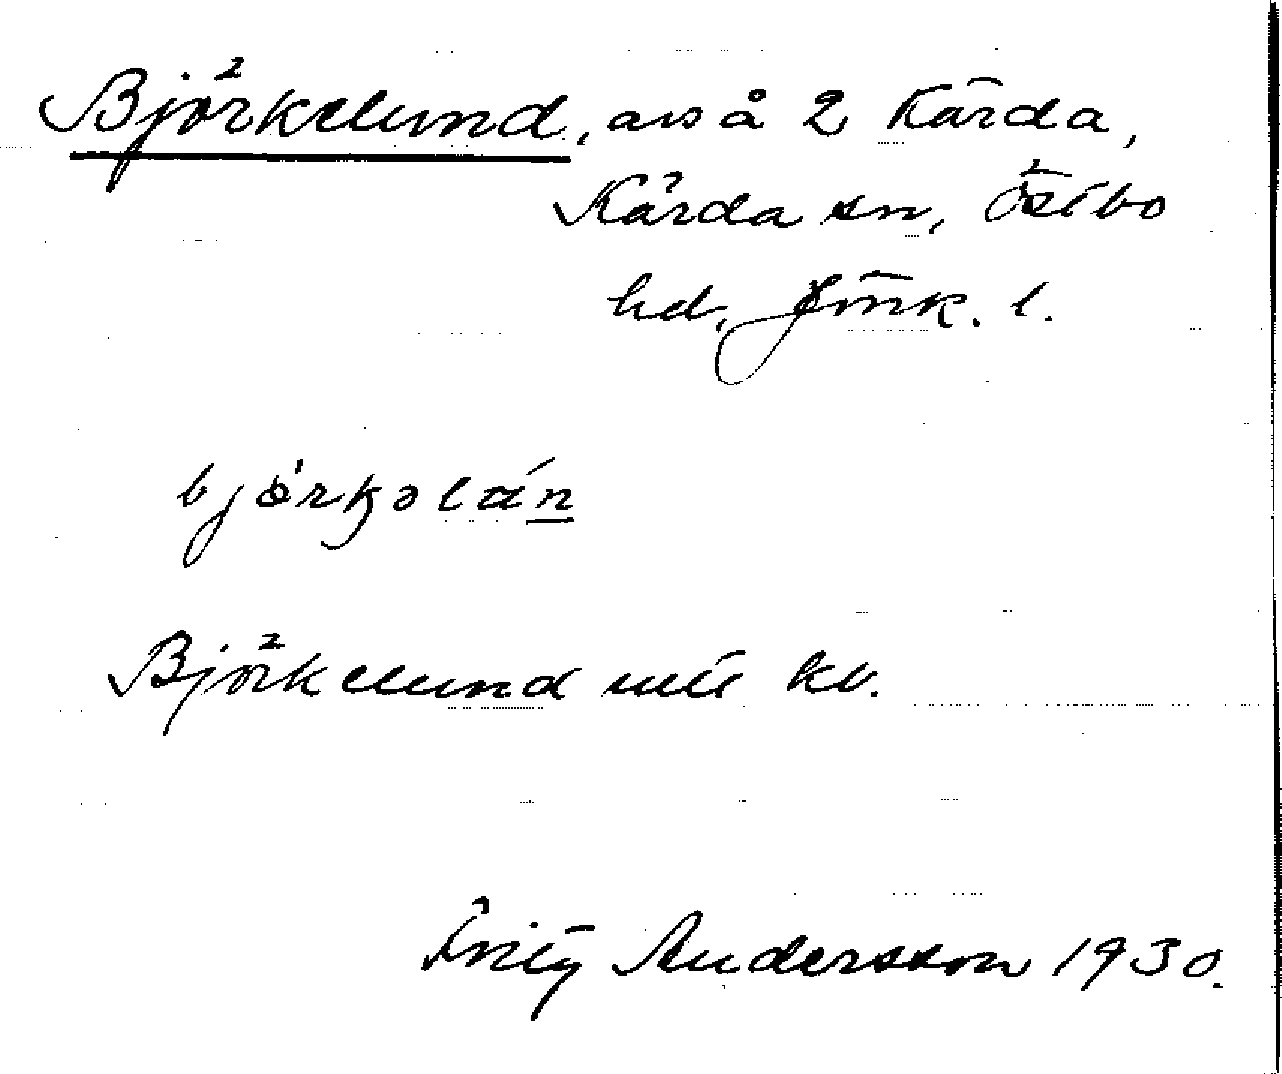 Björkelund, avs å 2 Kärda,
Kärda sn, Östbo
hd, Jönk. l.
björkəlún
Björkelund uttl kv.
Fritz Andersson 1930.